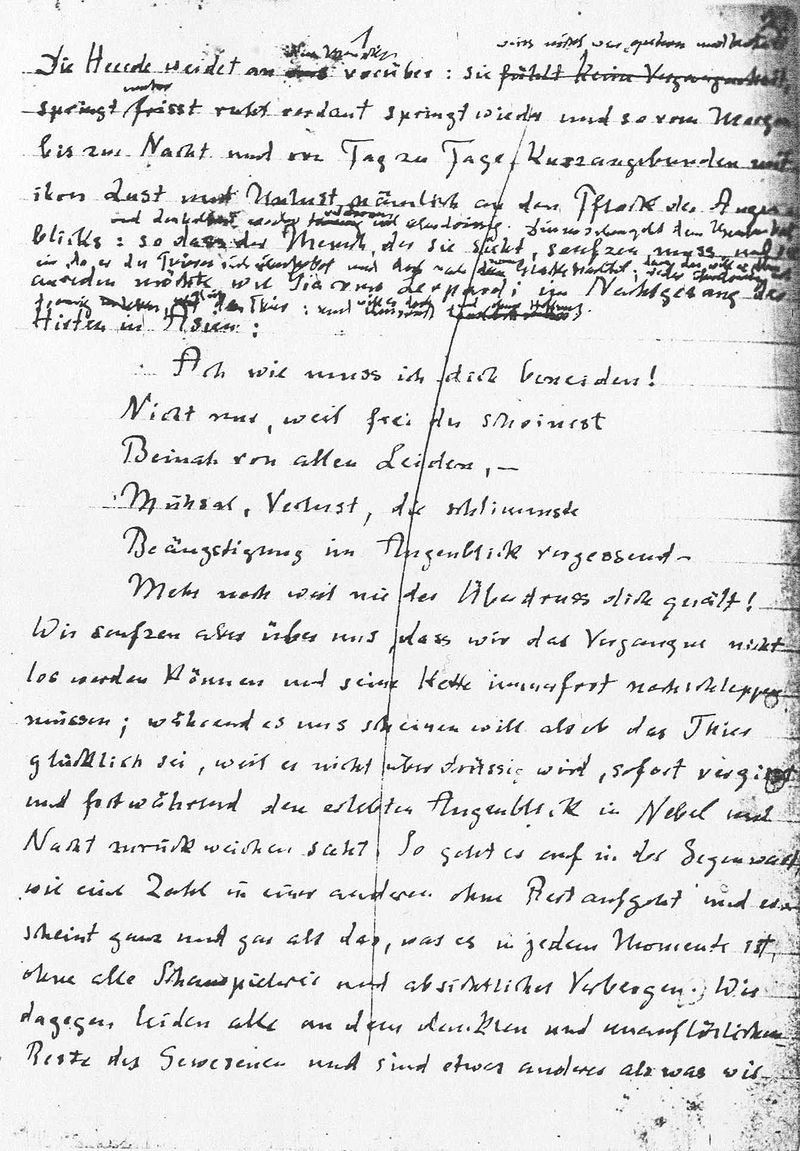 2
weiss nicht was gestern und heute ist
dem Menschen
Die Heerde weidet an uns vorüber: sie fühlt keine Vergangenheit,
springt frisst ruht verdaut springt wieder und so vom Morgen
bis zur Nacht und von Tag zu Tage, kurz angebunden mit
ihrer Lust und Unlust, nämlich an den Pflock des Augen
blicks: so dass der Mensch, der sie sieht, seufzen muss und sie
anreden möchte wie Giacomo Leopardi im Nachtgesang des
Hirten in Asien:
Ach wie muss ich dich beneiden!
Nicht nur, weil frei du scheinest
Beinah von allen Leiden, —
Mühsal, Verlust, die schlimmste
Beängstigung im Augenblick vergessend —
Mehr noch weil nie der Überdruss dich quält!
Wir seufzen aber über uns, dass wir das Vergangne nicht
los werden können und seine Kette immerfort nachschleppen
müssen; während es uns scheinen will als ob das Thier
glücklich sei, weil es nicht überdrüssig wird, sofort vergisst
und fortwährend den erlebten Augenblick in Nebel und
Nacht zurückweichen sieht. So geht es auf in der Gegenwart
wie eine Zahl in einer anderen ohne Rest aufgeht und es
scheint ganz und gar als das, was es in jedem Momente ist,
ohne alle Schauspielerei und absichtliches Verbergen. Wir
dagegen leiden alle an dem dunklen und unauflöslichen
Reste des Gewesenen und sind etwas anderes als was wir